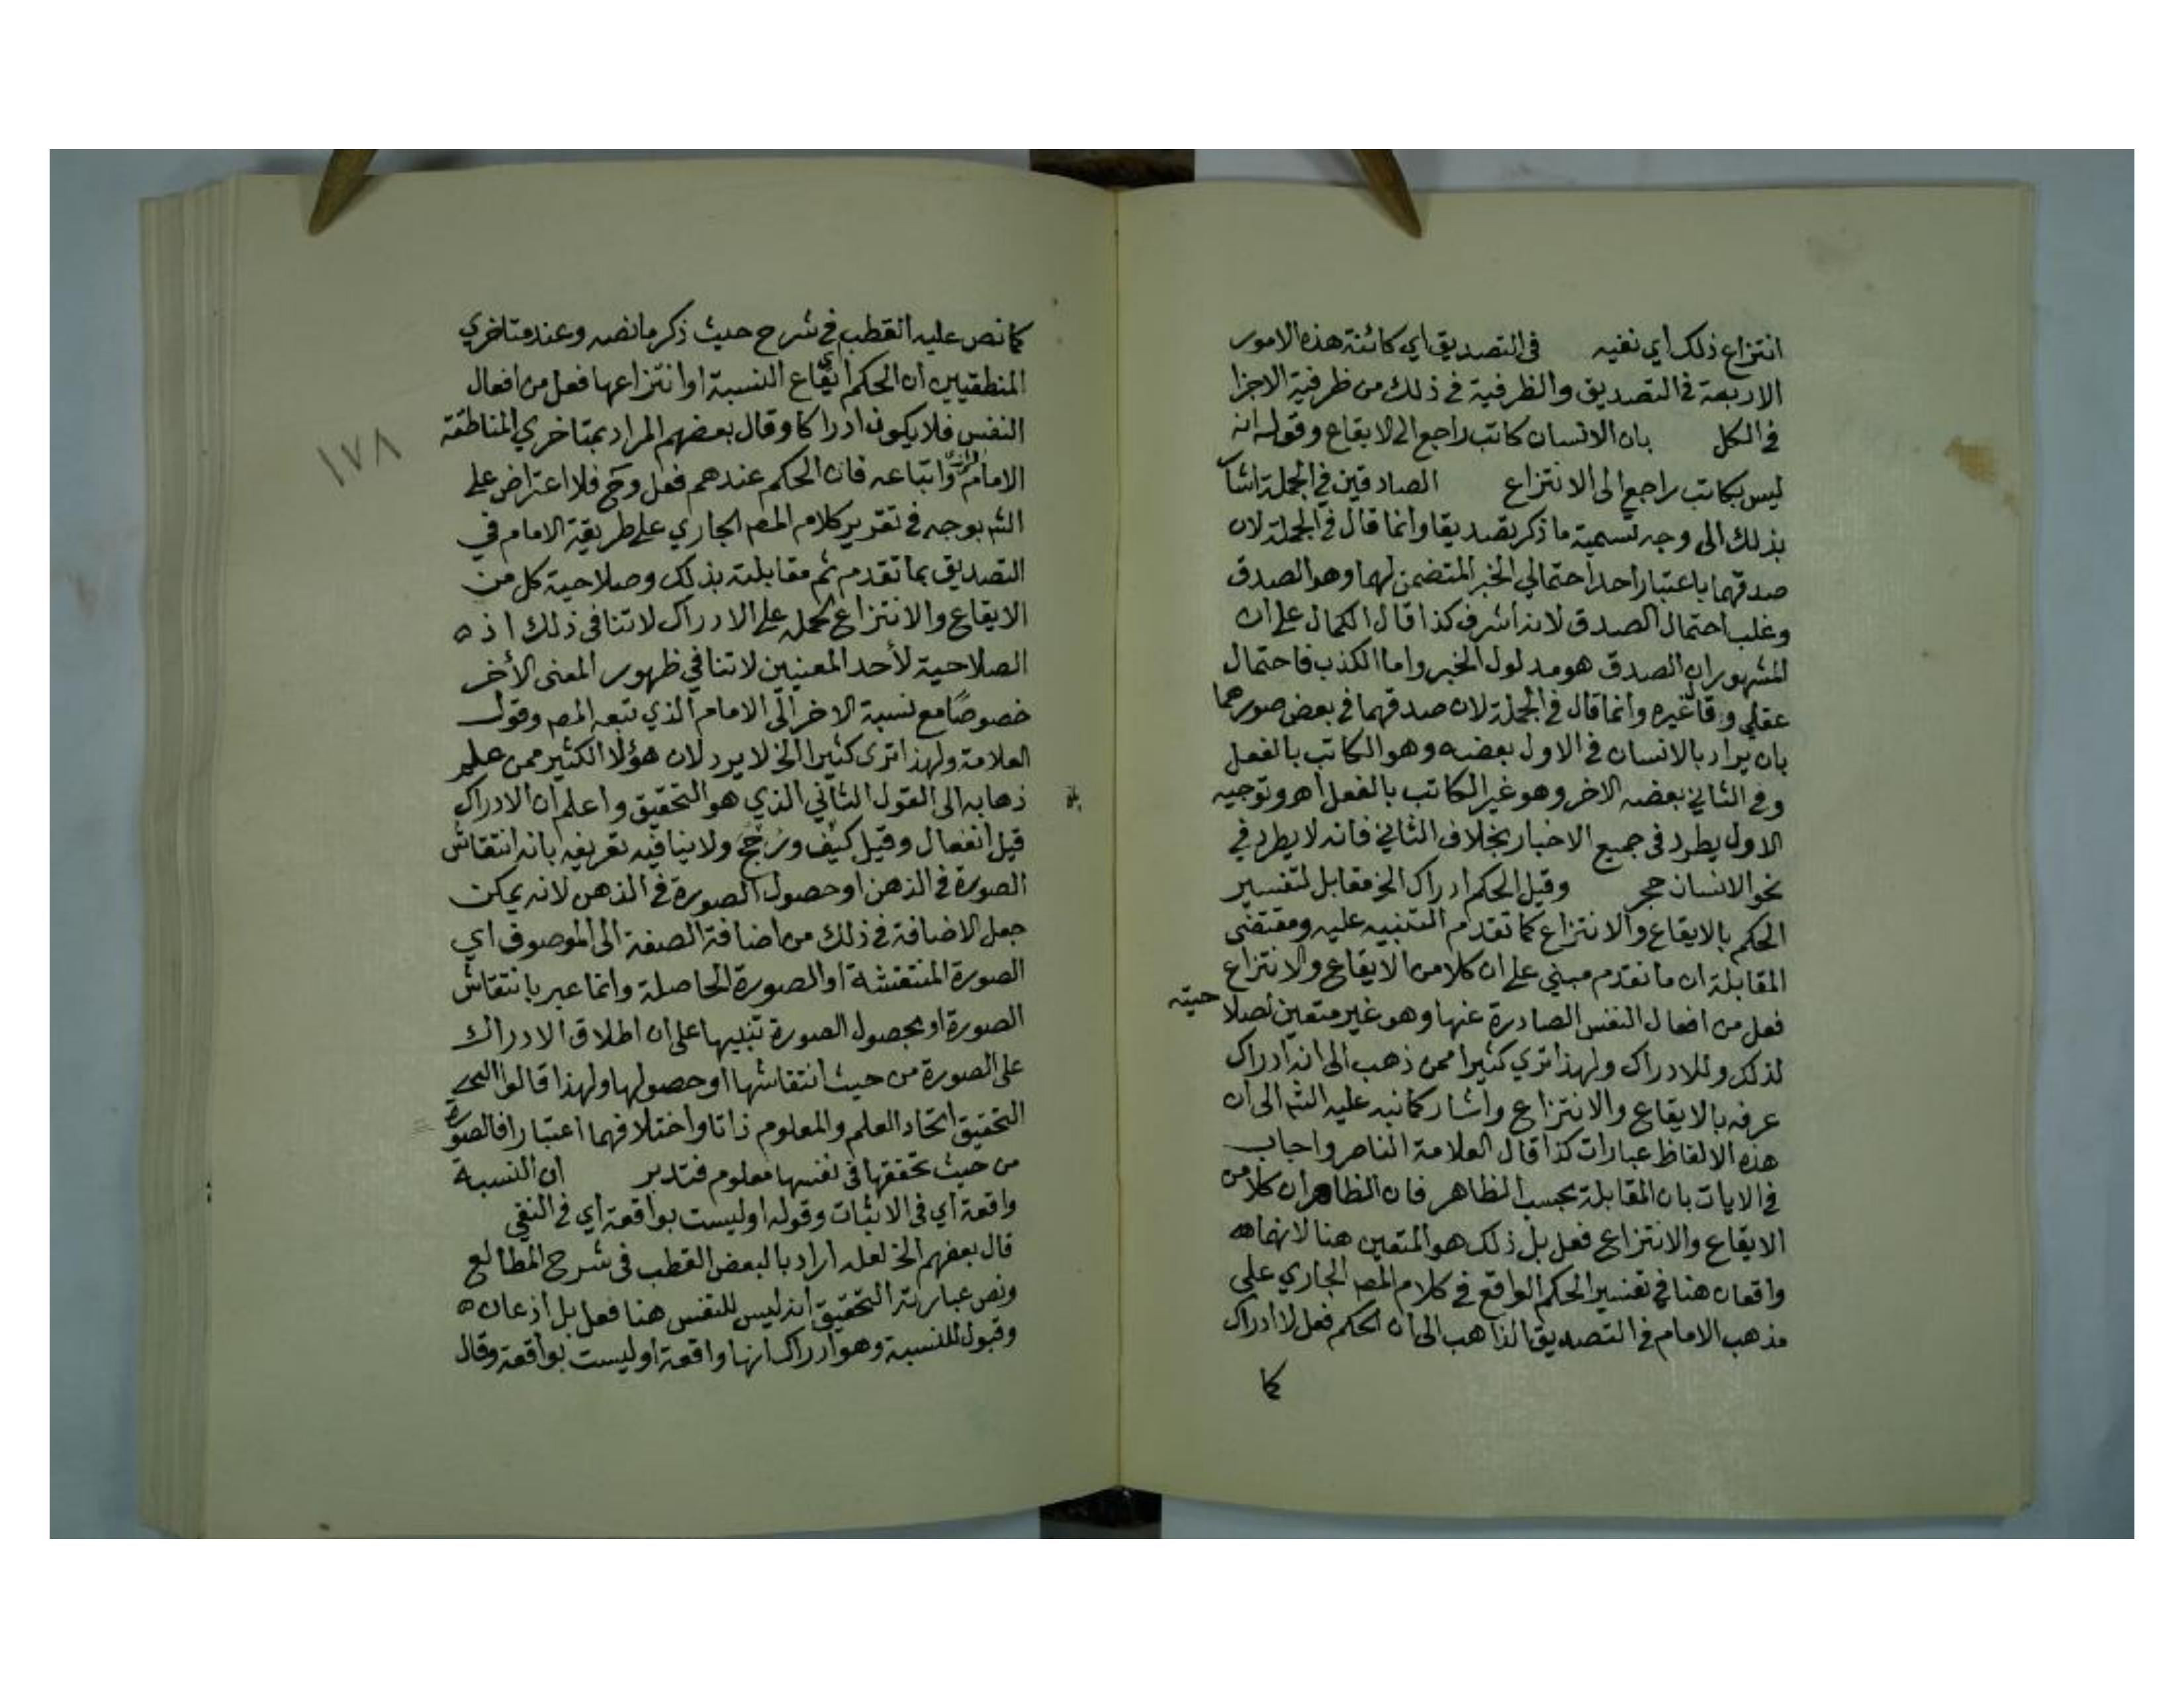 انتزاع ذلك اي نفيه في التصديق اي كائنة هذه الامور
الاربعة في التصديق والظرفية في ذلك من ظرفية الاجزا
في الكل بان الانسان كاتب راجع الى الايقاع وقوله انه
ليس بكاتب راجع الى الانتزاع الصادقين في الجملة اشا
بذلك الى وجه تسمية ما ذكر تصديقا وانما قال في الجملة لان
صدقهما باعتبار احد احتمالي الخبر المتضمن لهما وهو الصدق
وغلب احتمال الصدق لانه اشرف كذا قال الكمال على ان
المشهور ان الصدق هو مدلول الخبر واما الكذب فاحتمال
عقلي وقا غيره وانما قال في الجملة لان صدقهما في بعض صورهما
بان يراد بالانسان في الاول بعضه وهو الكاتب بالفعل
وفي الثاني بعضه الاخر وهو غير الكاتب بالفعل اهـ وتوجيه
الاول يطرد في جميع الاخبار بخلاف الثاني فانه لا يطرد في
نحو الانسان حجر وقيل الحكم ادراك الخ مقابل لتفسير
الحكم بالايقاع والانتزاع كما تقدم التنبيه عليه ومقتضى
المقابلة ان ما تقدم مبني على ان كلا من الايقاع والانتزاع
فعل من افعال النفس الصادرة عنها وهو غير متعين لصلا حيته
لذلك وللادراك ولهذا تري كثيرا ممن ذهب الى انه ادراك
عرفه بالايقاع والانتزاع واشار كما نبه عليه الشم الى ان
هذه الالفاظ عبارات كذا قال العلامة الناصر واجاب
في الايات بان المقابلة بحسب الظاهر فان الظاهر ان كلا من
الايقاع والانتزاع فعل بل ذلك هو المتعين هنا لانهما
واقعان هنا في تفسير الحكم الواقع في كلام المص الجاري على
مذهب الامام في التصديق الذاهب الى ان الحكم فعل لا ادراك
كما
كما نص عليه القطب في شرح حيث ذكر ما نصه وعند متاخري
المنطقيين ان الحكم اي ايقاع النسبة او انتزاعها فعل من افعال
النفس فلا يكون ادراكا وقال بعضهم المراد بمتاخري المناطقة
١٧٨
الامام الرازي واتباعه فان الحكم عندهم فعل وح فلا اعتراض على
الشم بوجه في تقرير كلام المص الجاري على طريقة الامام في
التصديق بما تقدم ثم مقابلته بذلك وصلاحية كل من
الايقاع والانتزاع لحمله على الادراك لا تنافي ذلك اذ
الصلاحية لأحد المعنيين لا تنافي ظهور المعنى الأخر
خصوصًا مع نسبة الاخر الى الامام الذي تبعه المص وقول
العلامة ولهذا ترى كثيرا الخ لا يرد لان هؤلا الكثير ممن علم
ذهابه الى القول الثاني الذي هو التحقيق واعلم ان الادراك
قيل انفعال وقيل كيف ورُجّح ولا ينافيه تعريفه بانه انتقاش
الصورة في الذهن او حصول الصورة في الذهن لانه يمكن
جعل الاضافة في ذلك من اضافة الصفة الى الموصوف اي
الصورة المنتقشة او الصورة الحاصلة وانما عبر بانتقاش
الصورة او بحصول الصورة تنبيها على ان اطلاق الادراك
على الصورة من حيث انتقاشها او حصولها ولهذا قالوا
التحقيق اتحاد العلم والمعلوم ذاتا واختلافهما اعتبارا فالصورة
من حيث تحققها في نفسها معلوم فتدبر ان النسبة
واقعة اي في الاثبات وقوله او ليست بواقعة اي في النفي
قال بعضهم الخ لعله اراد بالبعض القطب في شرح المطالع
ونص عبارته التحقيق انه ليس للنفس هنا فعل بل اذعان
وقبول للنسبة وهو ادراك انها واقعة او ليست بواقعة وقال